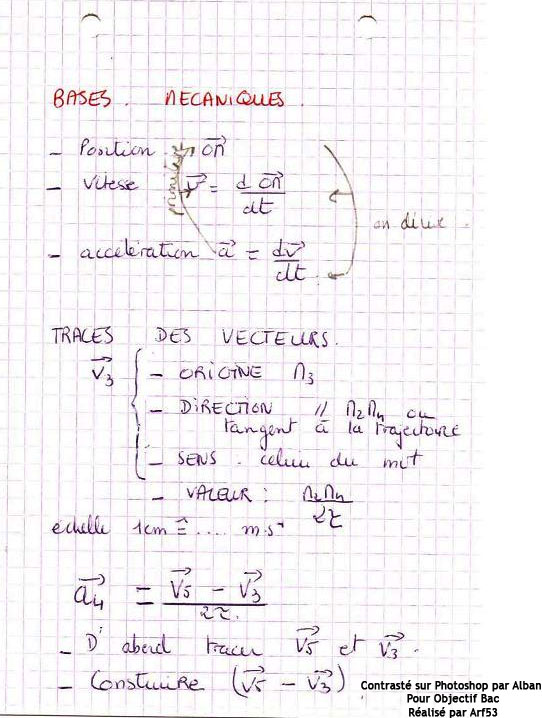 BASES. MECANIQUES.
- Position → OM
- Vitesse V = d OM
dt
on dérive
- accélération a = dv
dt
primitive
TRACES DES VECTEURS.
V3 - ORIGINE M3
- DIRECTION // M2M4 ou
tangent à la trajectoire
- SENS. celui du mvt
- VALEUR : M2M4
2τ
échelle 1cm ≙ .... m.s⁻¹
a4 = V5 - V3
2τ.
- D'abord tracer V5 et V3.
- Construire (V5 - V3)
Contrasté sur Photoshop par Alban
Pour Objectif Bac
Réalisé par Arf53